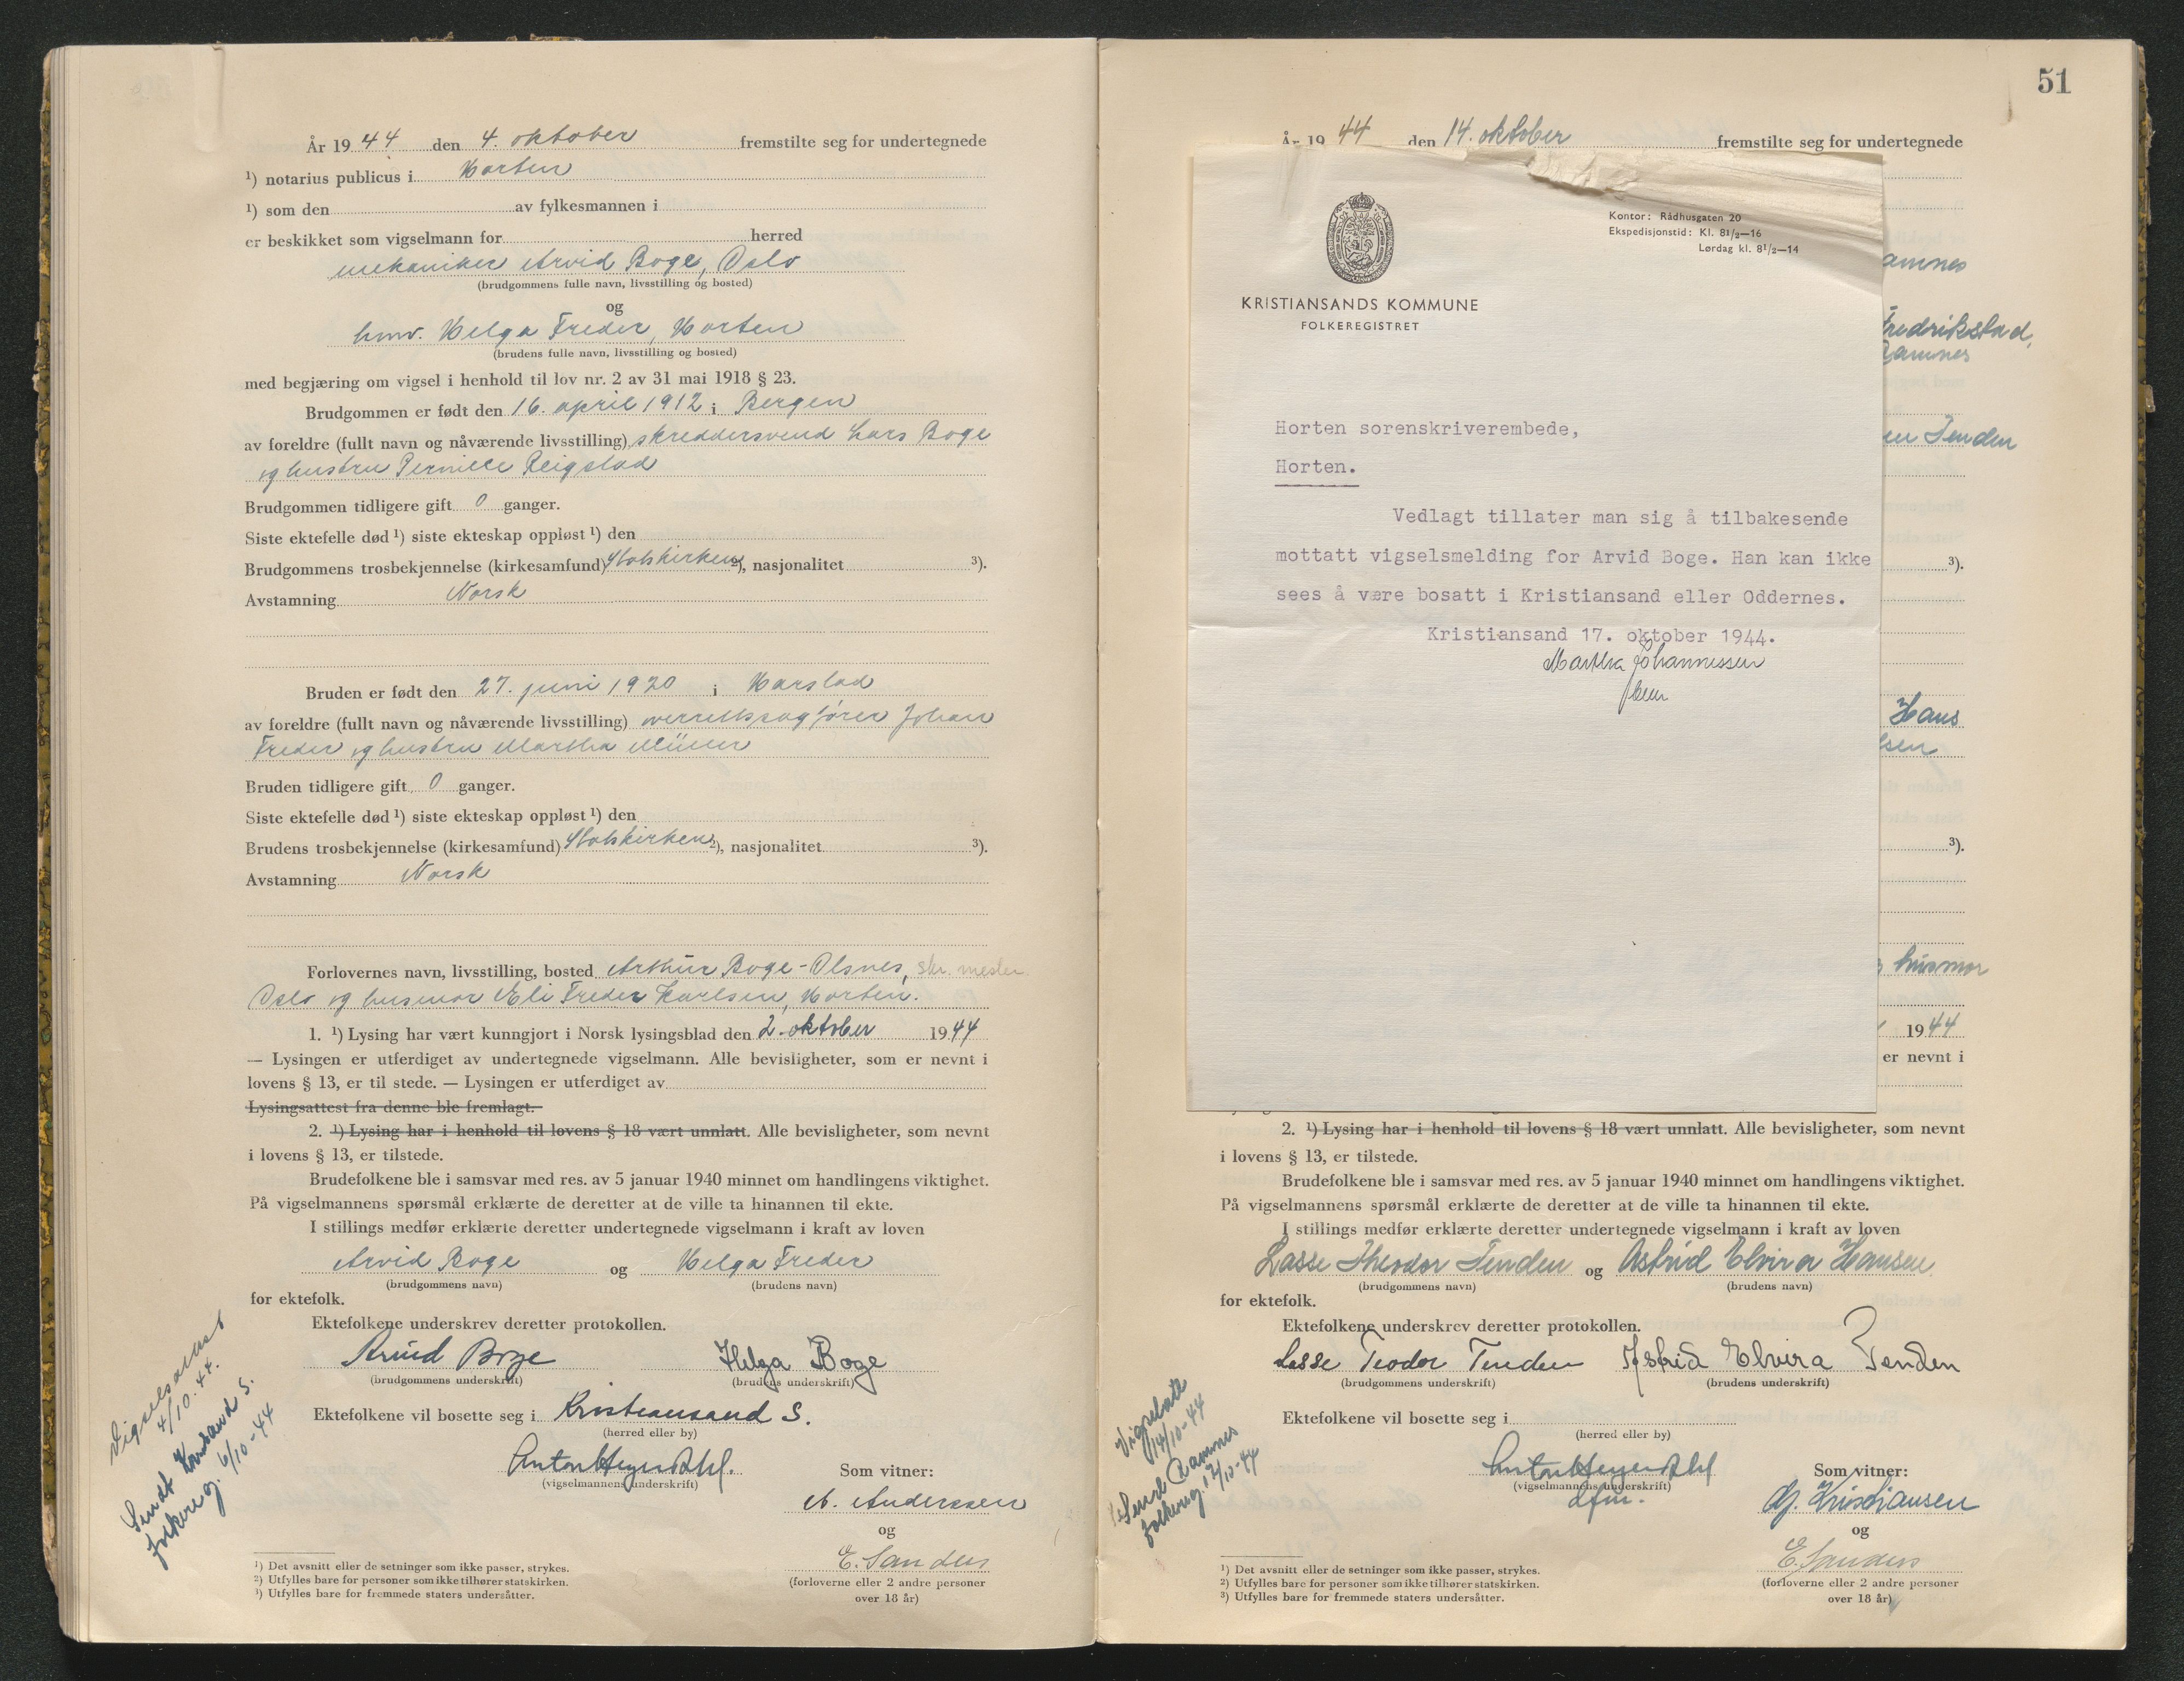 År 1944 den 4. oktober fremstilte seg for undertegnede
¹) notarius publicus i Horten
¹) som den av fylkesmannen i
er beskikket som vigselmann for herred
mekaniker Arvid Boge, Oslo
(brudgommens fulle navn, livsstilling og bosted)
og
hmv. Helga Freder, Horten
(brudens fulle navn, livsstilling og bosted)
med begjæring om vigsel i henhold til lov nr. 2 av 31 mai 1918 § 23.
Brudgommen er født den 16. april 1912 i Bergen
av foreldre (fullt navn og nåværende livsstilling) skreddersvend Lars Boge
og hustru Pernille Reigstad
Brudgommen tidligere gift 0 ganger.
Siste ektefelle død ¹) siste ekteskap oppløst ¹) den
Brudgommens trosbekjennelse (kirkesamfund) Statskirken ²), nasjonalitet ³).
Avstamning Norsk
Bruden er født den 27. juni 1920 i Harstad
av foreldre (fullt navn og nåværende livsstilling) overrettssagfører Johan
Freder og hustru Martha Müller
Bruden tidligere gift 0 ganger.
Siste ektefelle død ¹) siste ekteskap oppløst ¹) den
Brudens trosbekjennelse (kirkesamfund) Statskirken ²), nasjonalitet ³).
Avstamning Norsk
Forlovernes navn, livsstilling, bosted Arthur Boge-Olsnes, skr. mester
Oslo og husmor Eli Freder Karlsen, Horten.
1. ¹) Lysing har vært kunngjort i Norsk lysingsblad den 2. oktober 1944
— Lysingen er utferdiget av undertegnede vigselmann. Alle bevisligheter, som er nevnt i
lovens § 13, er til stede. — Lysingen er utferdiget av
Lysingsattest fra denne ble fremlagt.
2. ¹) Lysing har i henhold til lovens § 18 vært unnlatt. Alle bevisligheter, som nevnt
i lovens § 13, er tilstede.
Brudefolkene ble i samsvar med res. av 5 januar 1940 minnet om handlingens viktighet.
På vigselmannens spørsmål erklærte de deretter at de ville ta hinannen til ekte.
I stillings medfør erklærte deretter undertegnede vigselmann i kraft av loven
Arvid Boge og Helga Freder
(brudgommens navn) (brudens navn)
for ektefolk.
Ektefolkene underskrev deretter protokollen.
Arvid Boge Helga Boge
(brudgommens underskrift) (brudens underskrift)
Ektefolkene vil bosette seg i Kristiansand S.
(herred eller by)
(vigselmannens underskrift)
Som vitner:
A. Anderssen
og
E. Sanders
(forloverne eller 2 andre personer
over 18 år)
Vigselsattest
4/10.44.
Sendt Krsand S.
folkereg. 6/10-44
¹) Det avsnitt eller de setninger som ikke passer, strykes.
²) Utfylles bare for personer som ikke tilhører statskirken.
³) Utfylles bare for fremmede staters undersåtter.
51
År 1944 den 14. oktober fremstilte seg for undertegnede
Kontor: Rådhusgaten 20
Ekspedisjonstid: Kl. 8½—16
Lørdag kl. 8½—14
KRISTIANSANDS KOMMUNE
FOLKEREGISTRET
Horten sorenskriverembede,
Horten.
Vedlagt tillater man sig å tilbakesende
mottatt vigselsmelding for Arvid Boge. Han kan ikke
sees å være bosatt i Kristiansand eller Oddernes.
Kristiansand 17. oktober 1944.
Martha Johannessen
amnes
Fredrikstad,
Ramnes
en Tenden
³).
Hans
lsen
³).
husmor
1944
er nevnt i
2. ¹) Lysing har i henhold til lovens § 18 vært unnlatt. Alle bevisligheter, som nevnt
i lovens § 13, er tilstede.
Brudefolkene ble i samsvar med res. av 5 januar 1940 minnet om handlingens viktighet.
På vigselmannens spørsmål erklærte de deretter at de ville ta hinannen til ekte.
I stillings medfør erklærte deretter undertegnede vigselmann i kraft av loven
Lasse Theodor Tenden og Astrid Elvira Hansen
(brudgommens navn) (brudens navn)
for ektefolk.
Ektefolkene underskrev deretter protokollen.
Lasse Teodor Tenden Astrid Elvira Tenden
(brudgommens underskrift) (brudens underskrift)
Ektefolkene vil bosette seg i
(herred eller by)
(vigselmannens underskrift)
Som vitner:
Kristiansen
og
E. Sanders
(forloverne eller 2 andre personer
over 18 år)
14/10-44
Send Ramnes
folkereg. 17/10-44
¹) Det avsnitt eller de setninger som ikke passer, strykes.
²) Utfylles bare for personer som ikke tilhører statskirken.
³) Utfylles bare for fremmede staters undersåtter.